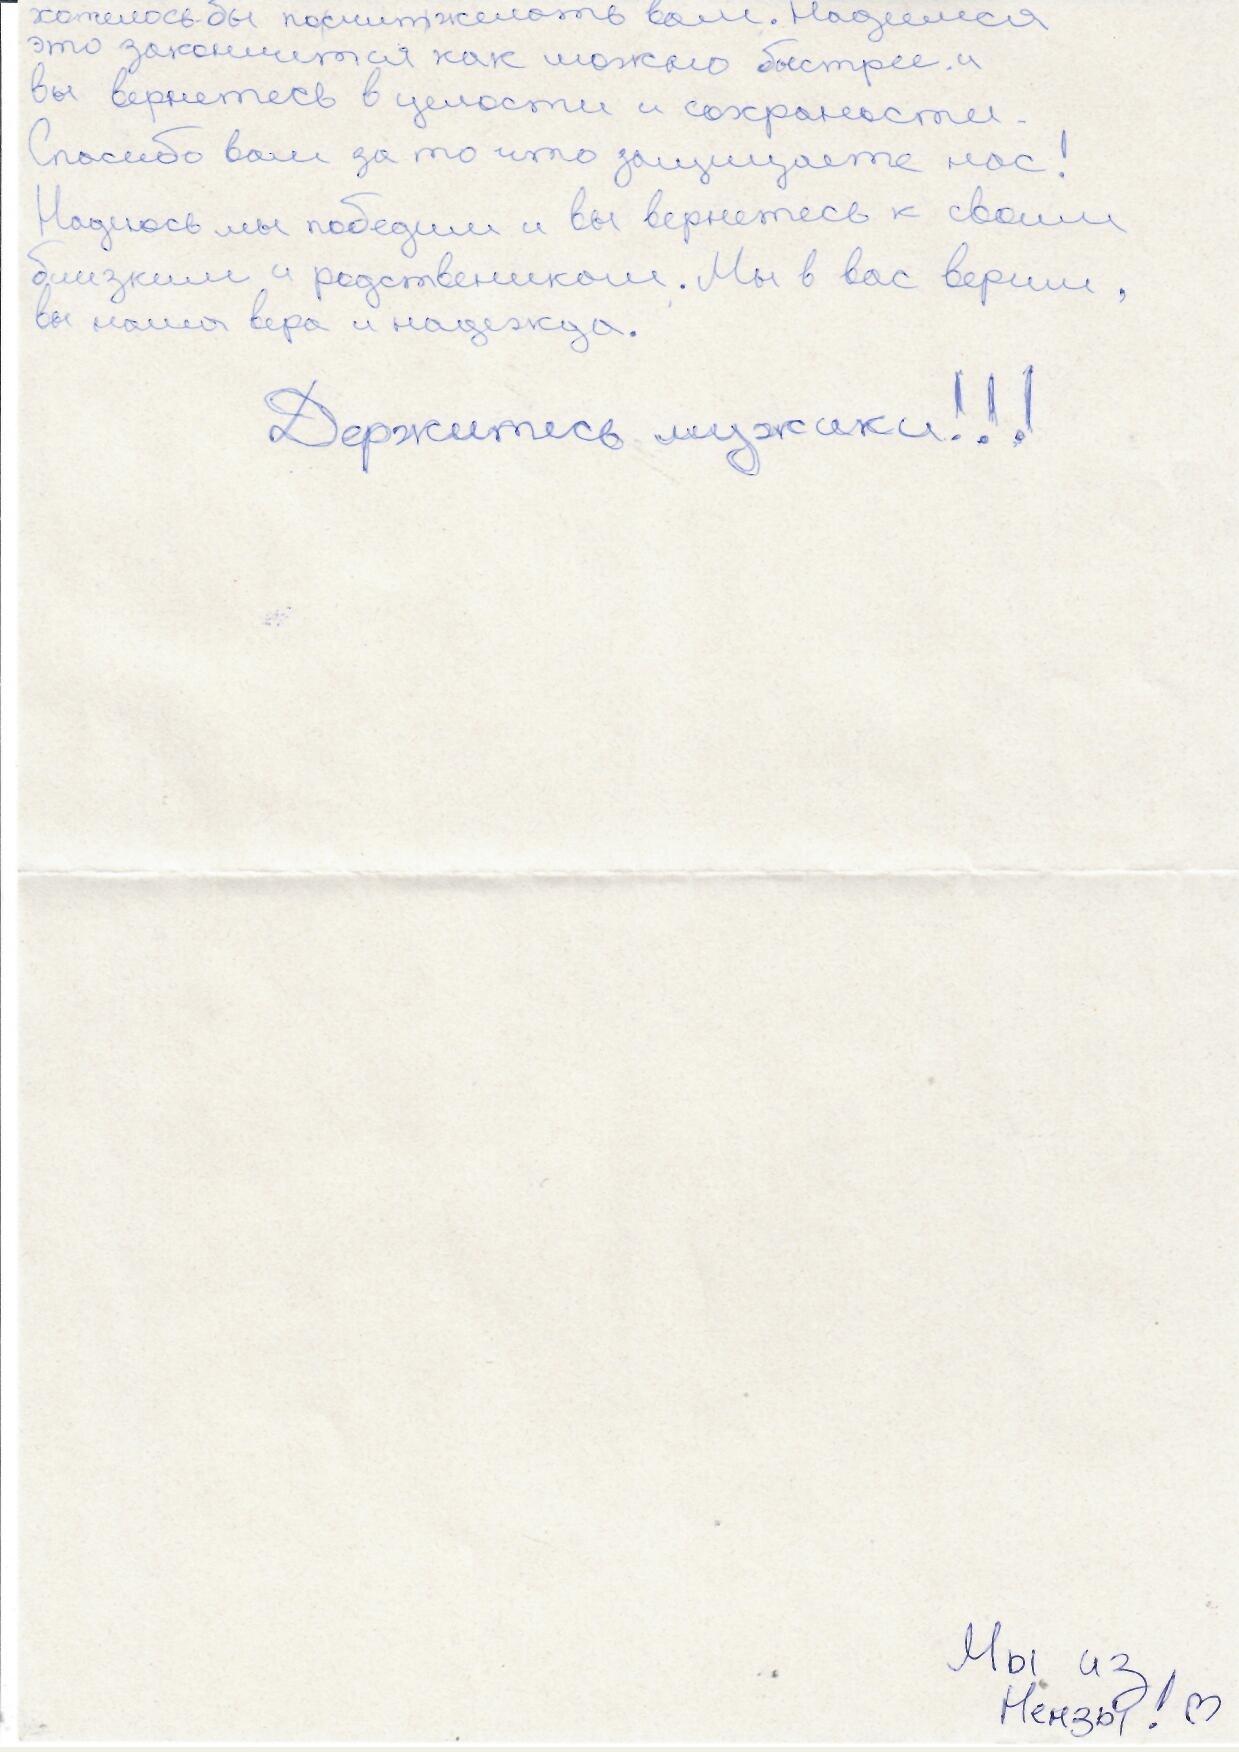 хотелось бы пожелать вам. Надеимся
это закончится как можно быстрее и
вы вернетесь в целости и сохраности.
Спасибо вам за то что защищаете нас!
Надеюсь мы победим и вы вернетесь к своим
близким и родствеником. Мы в вас верим,
вы наша вера и надежда.
Держитесь мужики!!!
Мы из
Нензы!